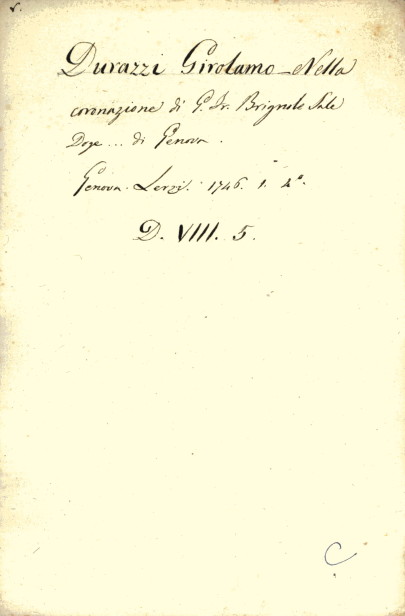 v.
Durazzi Girolamo - Nella
coronazione di G. Fr. Brignole Sale
Doge ... di Genova.
Genova. Lerzi. 1746. 1. 4°.
D. VIII. 5.
C